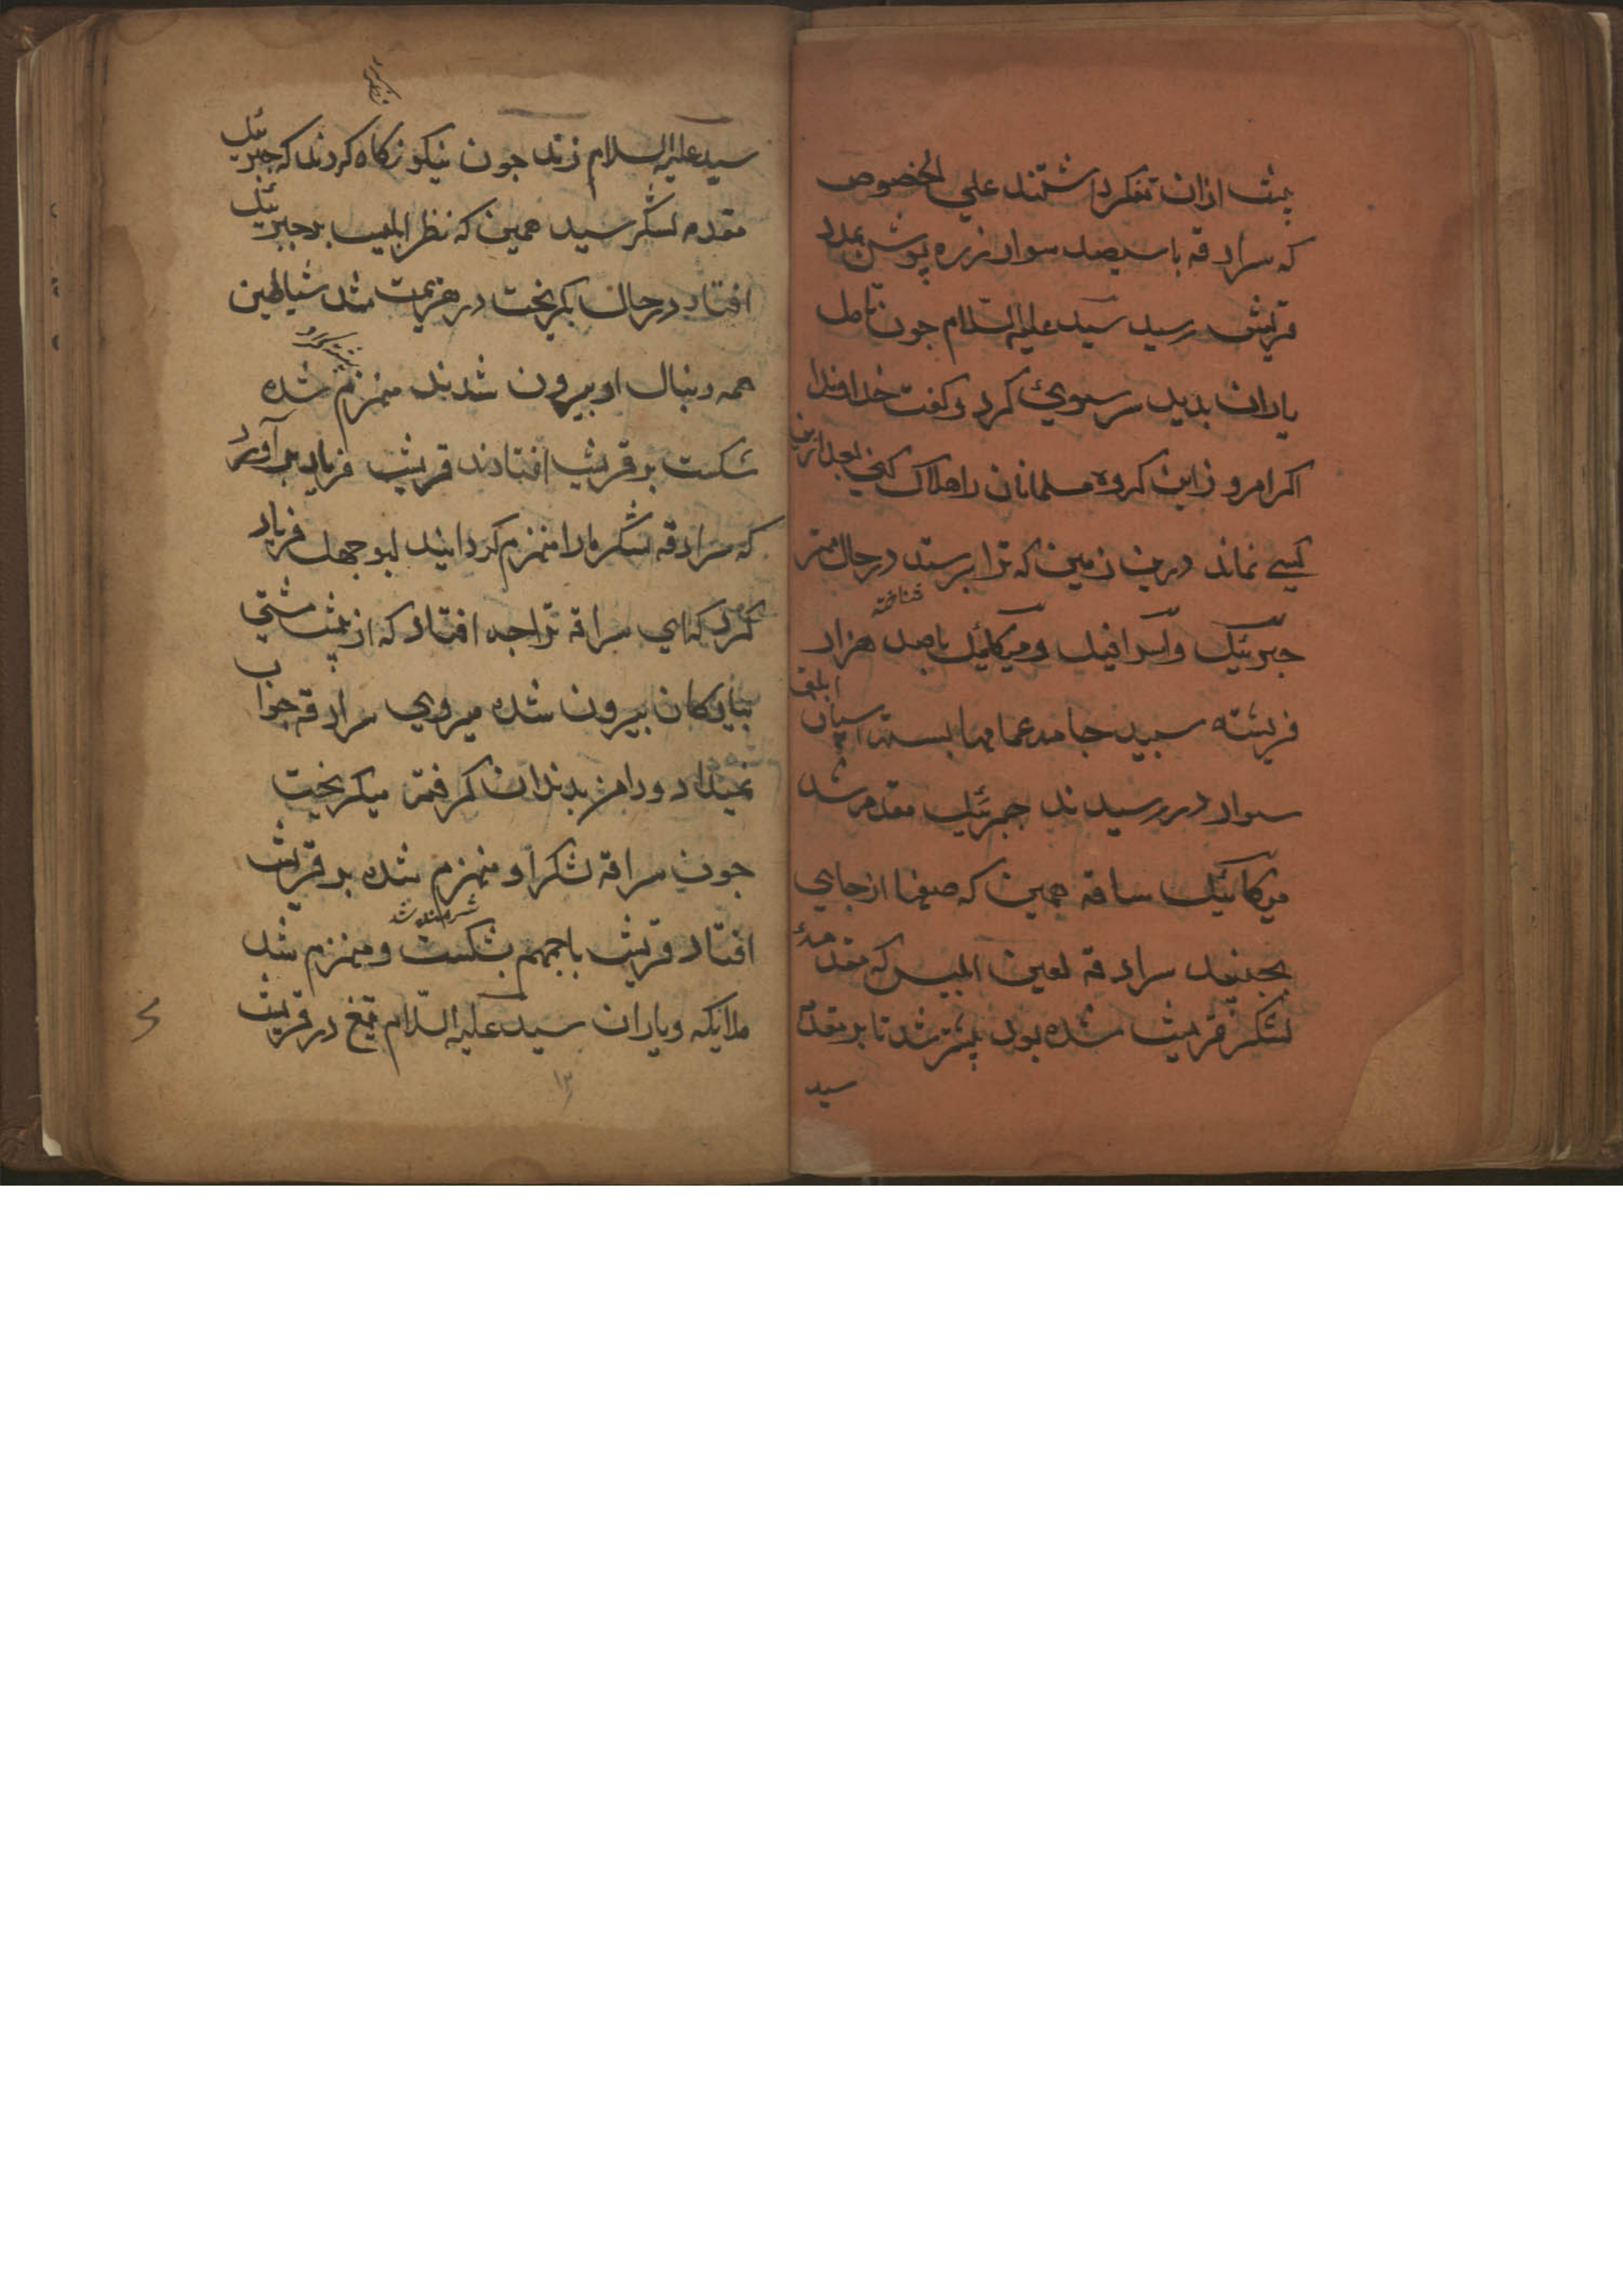 پیش ازان تفکر داشتند علي الخصوص
که سرادقه با سیصد سوار زره پوش بمدد
قریش رسید سید علیه السلام جون تامل
یاران بدید سر سوئ کرد و کفت خداوندا
اکر امروز این کروه مسلمانان را هلاک کني بعد ازین
کسے نماند درین زمین که ترا پرستد در حال مهتر
شناخته
جبرئیل و اسرافیل و میکائیل با صد هزار
فریشته سبید جامه عمامها بسته بر اسپان ابلق
سوار در رسیدند جبرئیل مقدم شد
میکائیل ساقه همین که صفها از جاي
بجنبید سرادقه لعین ابلیس که مقدمهٔ
لشکر قریش شده بود پیشتر شد تا بر مقدمه
سید
سید علیه السلام زند جون نیکو نکاه کردند که جبرئیل
مقدمه لشکر سید همین که نظر ابلیس بر جبرئیل
افتاد در حال بکریخت در هزیمت شد شیاطین
همه دنبال او بیرون شدند منهزم شده
شکست بر قریش افتادند قریش فریاد بر آورد
که سرادقه لشکر ما را منهزم کردانید ابو جهل فریاد
کرد که اي سراقه ترا چه افتاد که از پیش مشتي
بیادکان بیرون شده میروي سرادقه جواب
نمیداد و دامن بدندان کرفته میکریخت
جون سراقه لشکر او منهزم شده بر قریش
شرمنده شد
افتاد قریش باجمهم بشکست و منهزم شد
ملایکه و یاران سید علیه السلام تیغ در قریش
۱۳